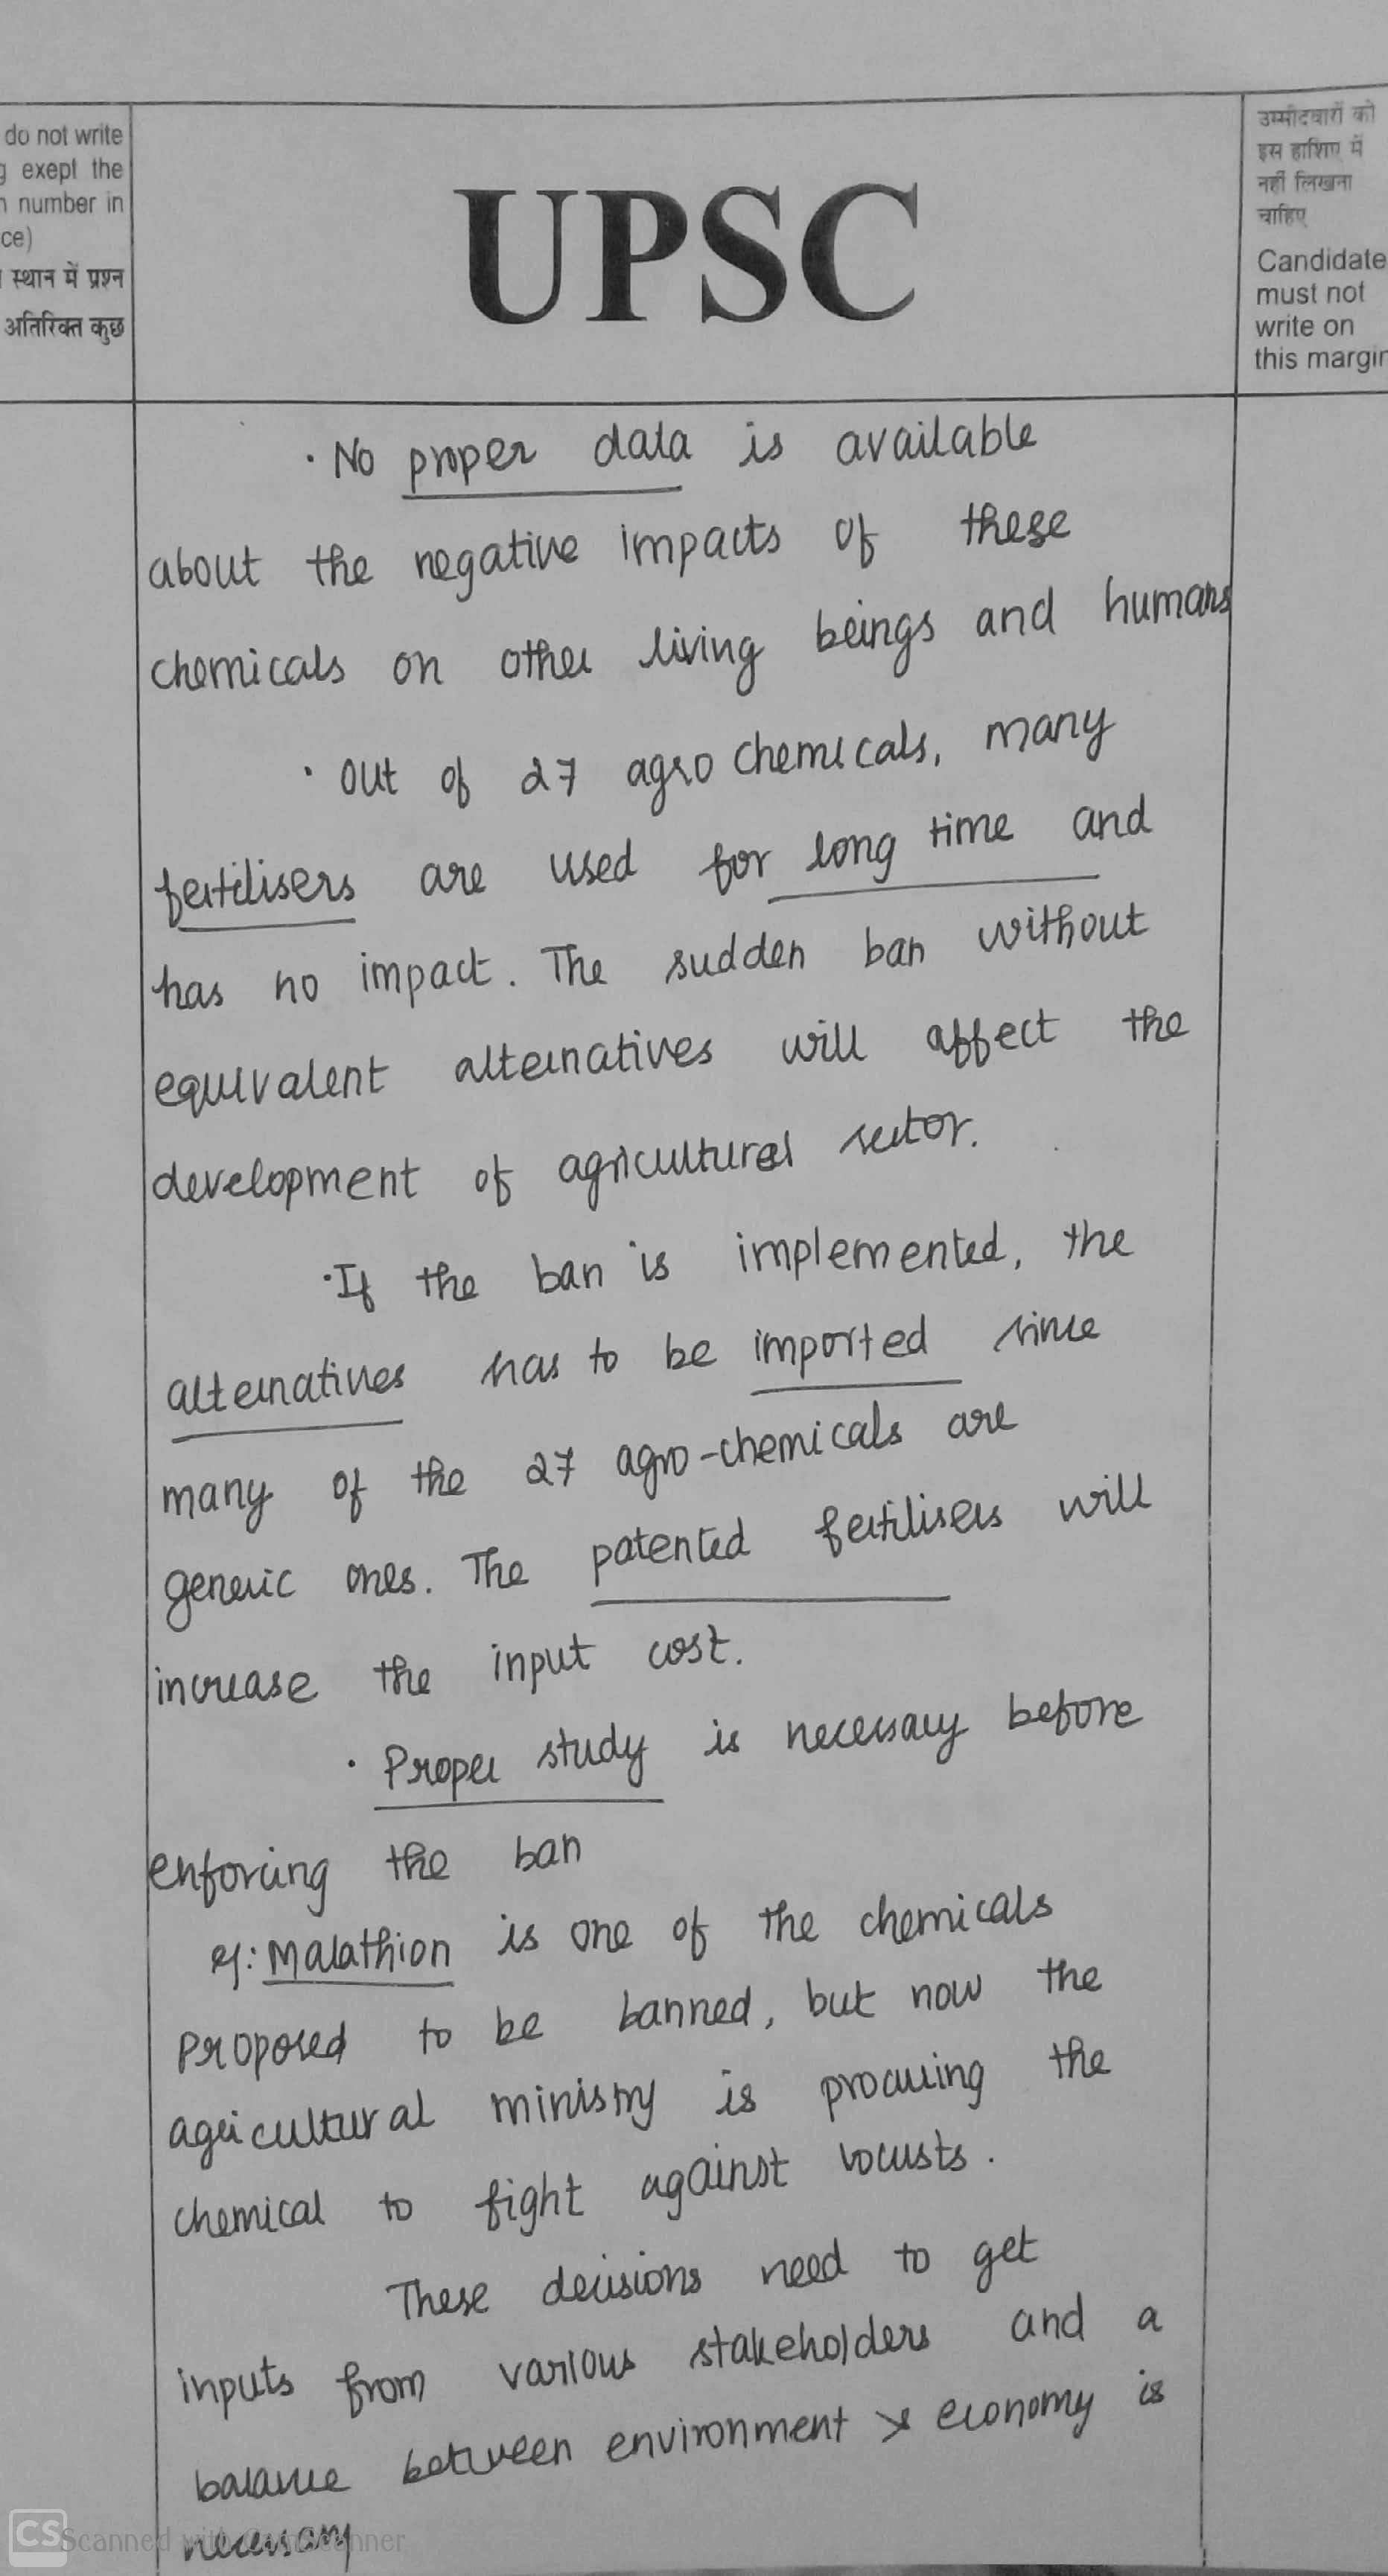 do not write
exept the
number in
ce)
स्थान में प्रश्न
अतिरिक्त कुछ
UPSC
उम्मीदवारों को
इस हाशिए में
नहीं लिखना
चाहिए
Candidate
must not
write on
this margin
· No proper data is available
about the negative impacts of these
chemicals on other living beings and humans
· Out of 27 agro chemicals, many
fertilisers are used for long time and
has no impact. The sudden ban without
equivalent alternatives will affect the
development of agricultural sector.
· If the ban is implemented, the
alternatives has to be imported since
many of the 27 agro-chemicals are
generic ones. The patented fertilisers will
increase the input cost.
· Proper study is necessary before
enforcing the ban
eg: Malathion is one of the chemicals
proposed to be banned, but now the
agricultural ministry is procuring the
chemical to fight against locusts.
These decisions need to get
inputs from various stakeholders and a
balance between environment & economy is
necessary
CS Scanned with CamScanner